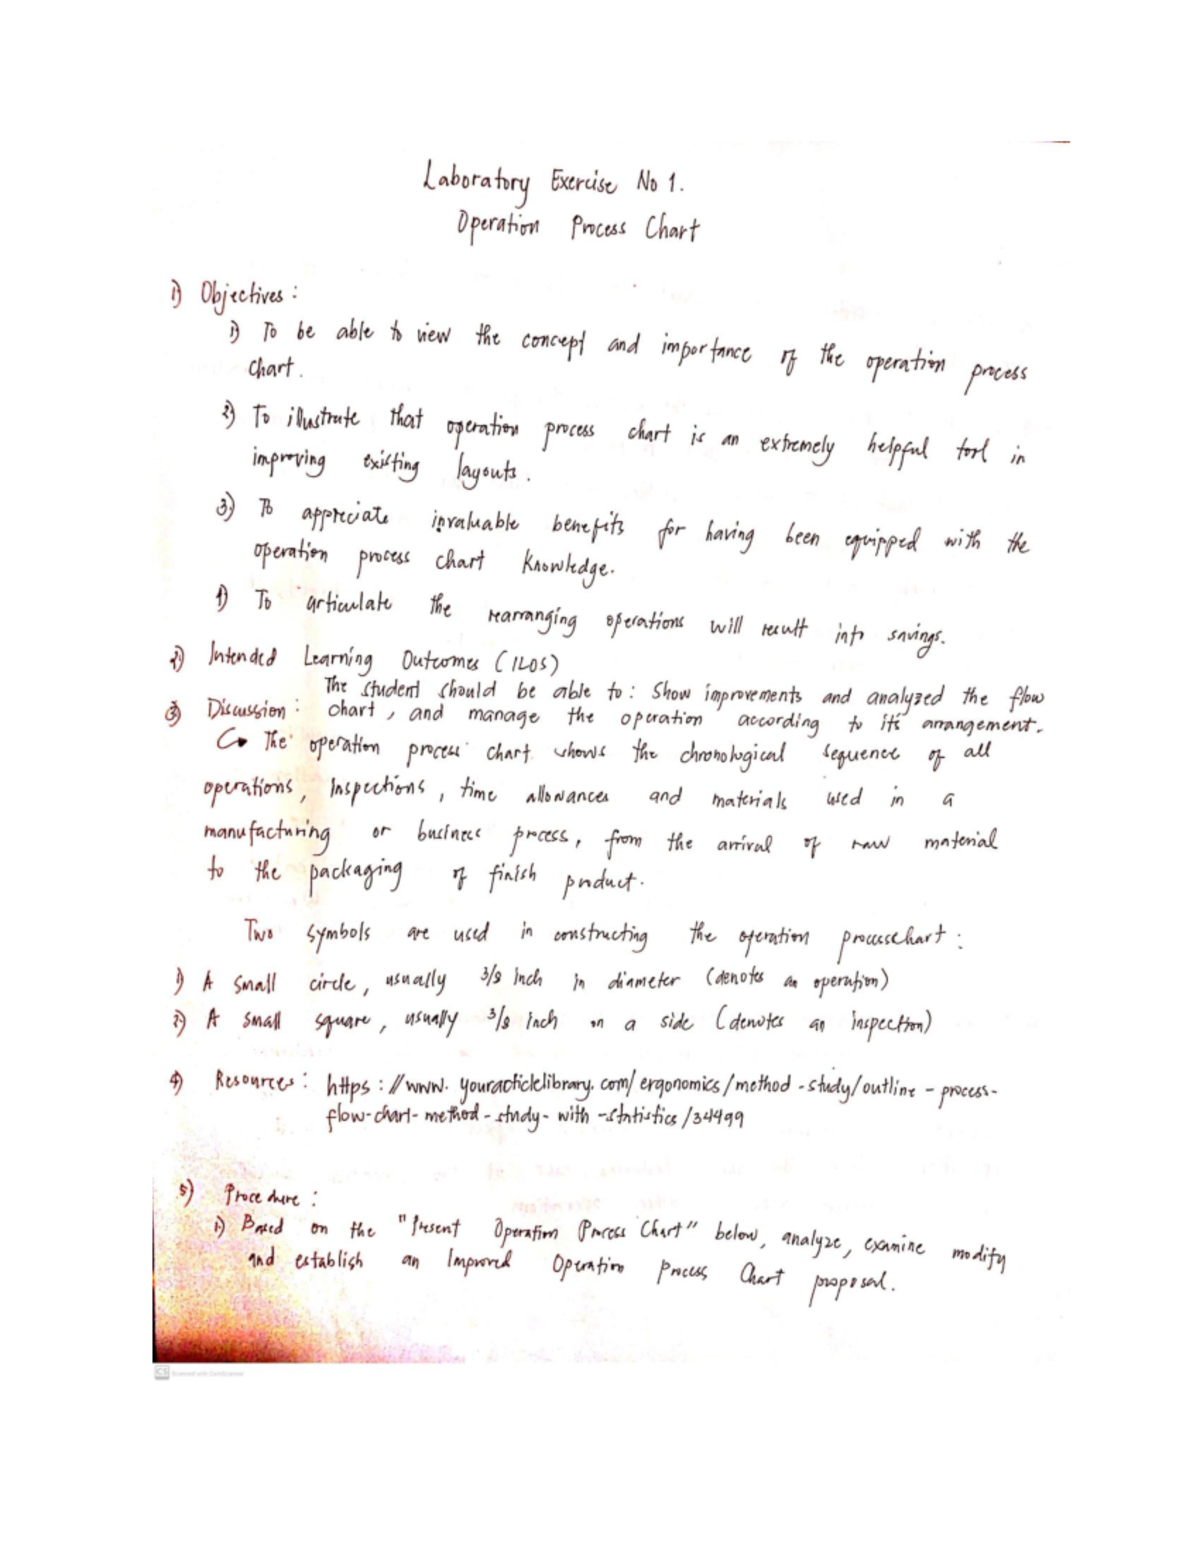 Laboratory Exercise No 1.
Operation Process Chart
1) Objectives :
1) To be able to view the concept and importance of the operation process
chart.
2) To illustrate that operation process chart is an extremely helpful tool in
improving existing layouts.
3) To appreciate invaluable benefits for having been equipped with the
operation process chart knowledge.
4) To articulate the rearranging operations will result into savings.
2) Intended Learning Outcomes (ILOS)
The student should be able to : Show improvements and analyzed the flow
3) Discussion : chart, and manage the operation according to its arrangement.
The operation process chart shows the chronological sequence of all
operations, Inspections, time allowances and materials used in a
manufacturing or business process, from the arrival of raw material
to the packaging of finish product.
Two symbols are used in constructing the operation processchart :
1) A small circle, usually 3/8 inch in diameter (denotes an operation)
2) A small square, usually 3/8 inch on a side (denotes an inspection)
4) Resources : https://www.youracticlelibrary.com/ergonomics/method-study/outline-process-
flow-chart-method-study-with-statistics/34499
5) Procedure :
1) Based on the "Present Operation Process Chart" below, analyze, examine modify
and establish an Improved Operation Process Chart proposal.
CS Scanned with CamScanner